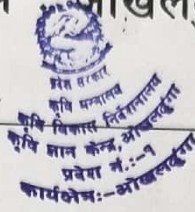 प्रदेश सरकार
कृषि मन्त्रालय
कृषि विकास निर्देशनालय
कृषि ज्ञान केन्द्र, ओखलढुंगा
प्रदेश नं.:-१
कार्यक्षेत्र:-ओखलढुंगा